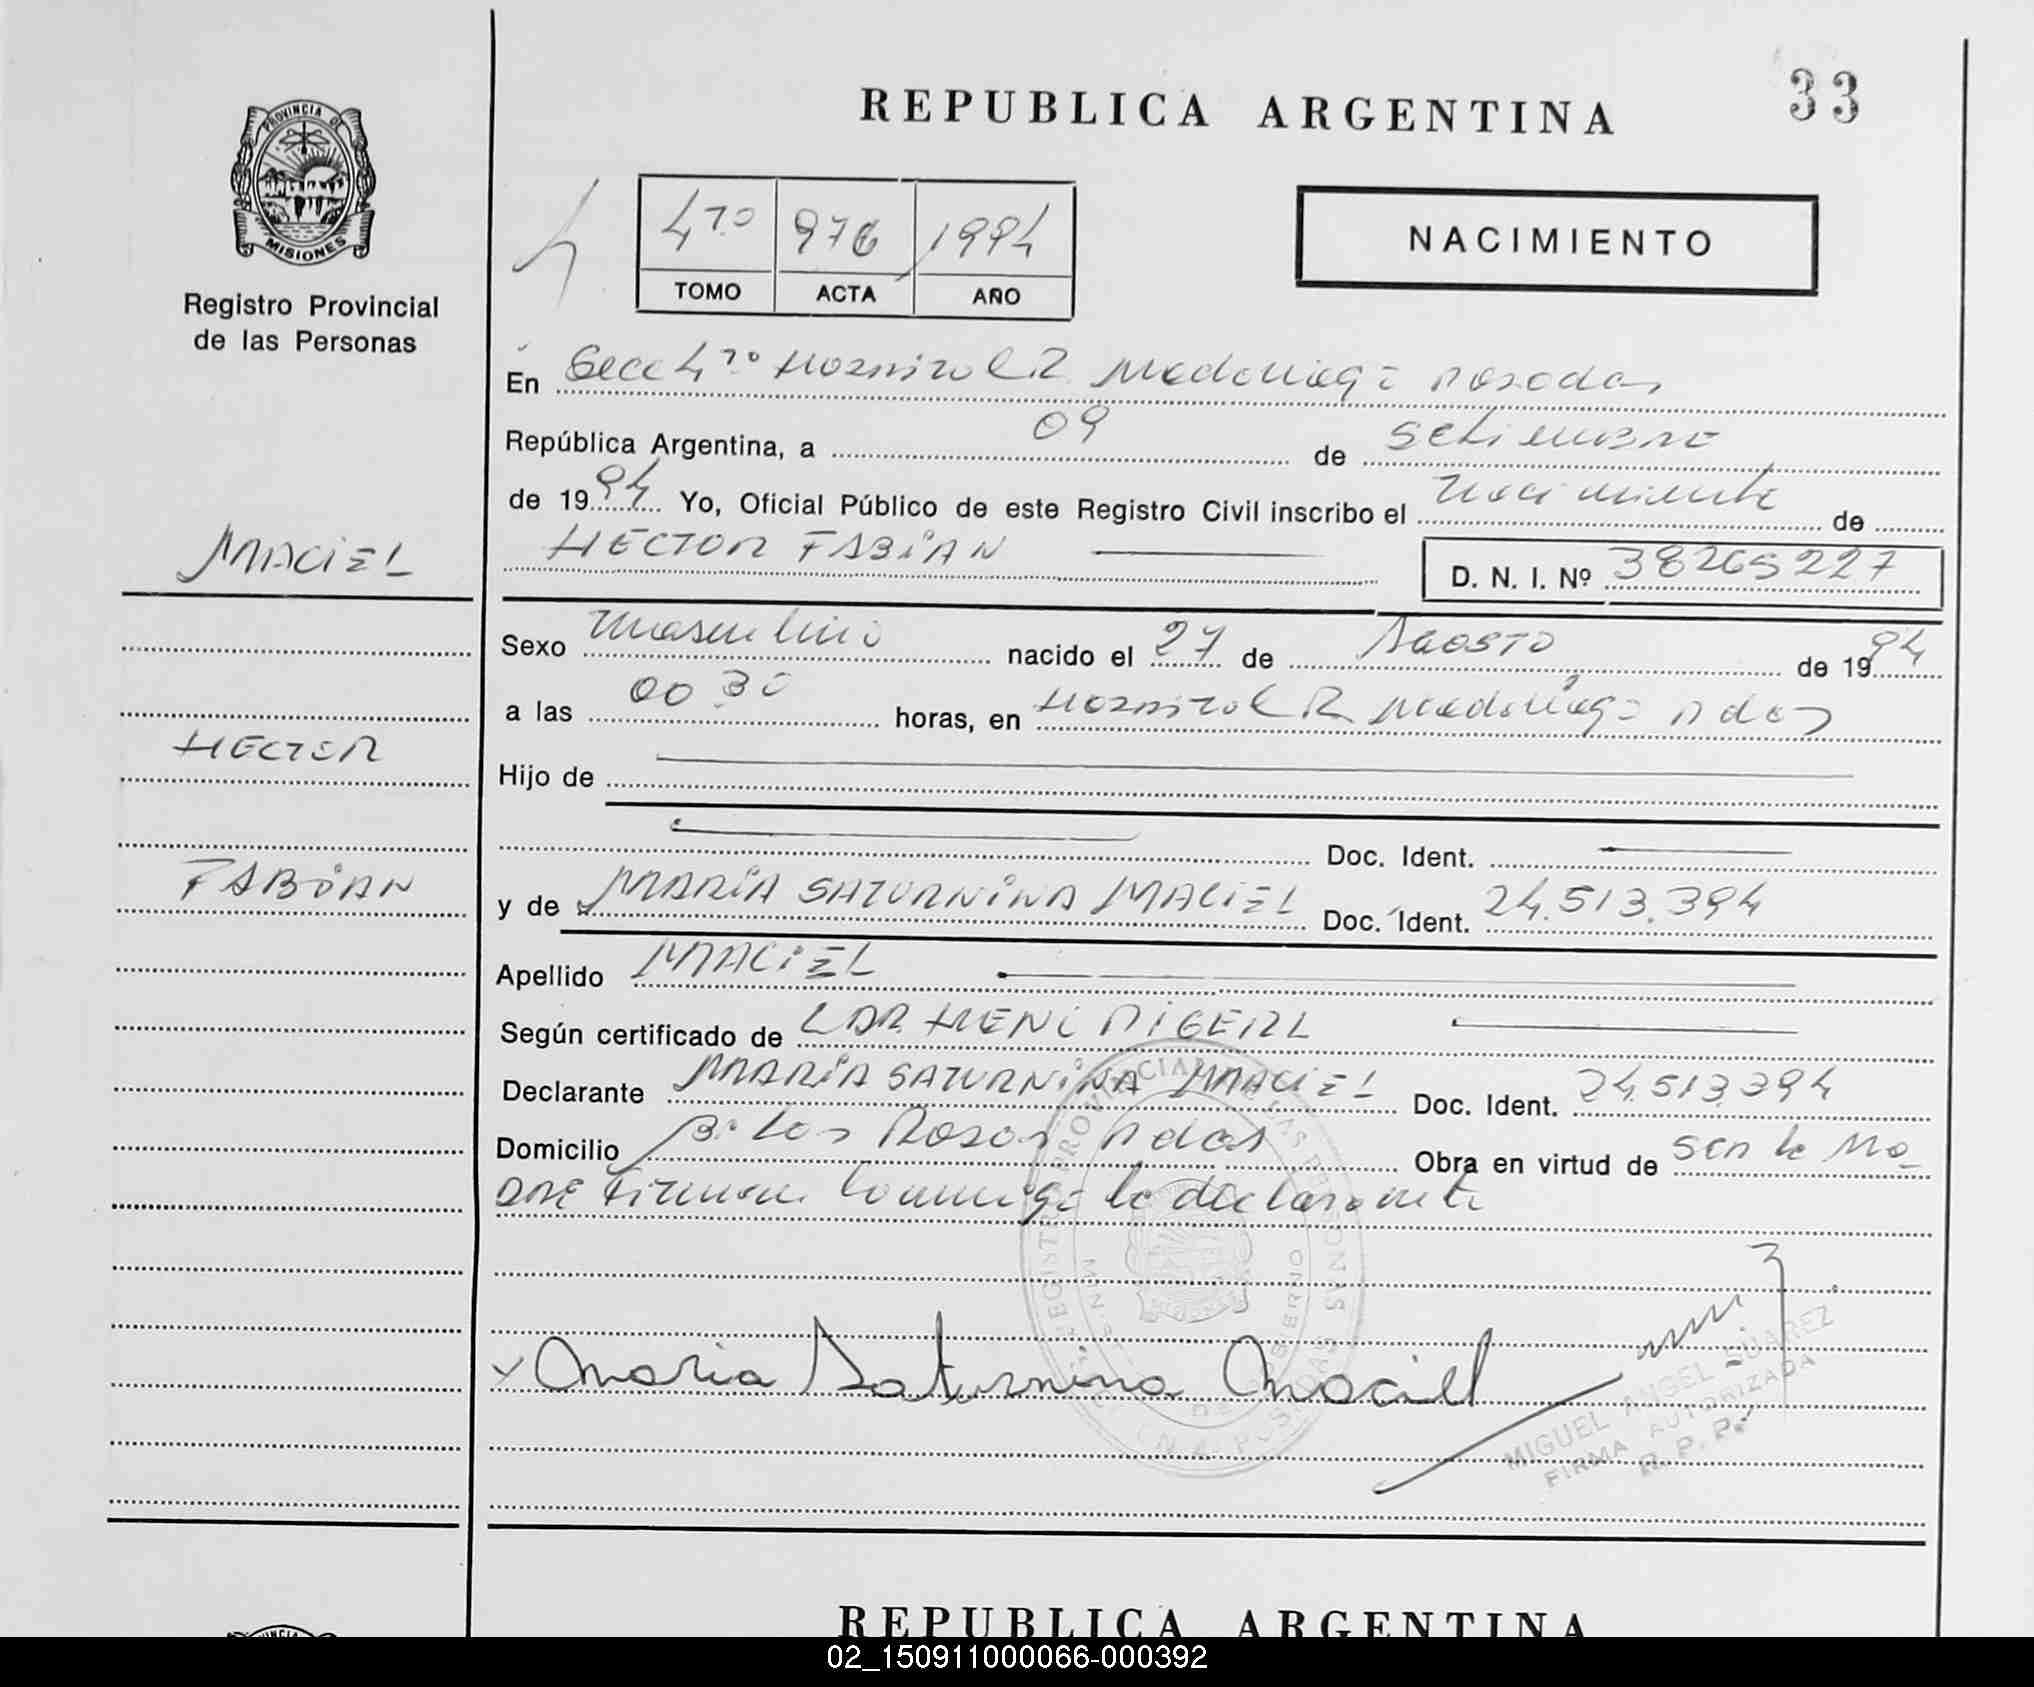 33
REPUBLICA ARGENTINA
PROVINCIA DE
MISIONES
Registro Provincial
de las Personas
4to 976 1994
TOMO ACTA AÑO
NACIMIENTO
En Secc 4to Hospital R. Madariaga Posadas
República Argentina, a 09 de Setiembre
de 1994 Yo, Oficial Público de este Registro Civil inscribo el nacimiento de
HECTOR FABIAN D. N. I. Nº 38265227
MACIEL
Sexo masculino nacido el 27 de Agosto de 1994
a las 00 30 horas, en Hospital R Madariaga Pdas
HECTOR
Hijo de
Doc. Ident.
FABIAN
y de MARIA SATURNINA MACIEL Doc. Ident. 24.513.394
Apellido MACIEL
Según certificado de
Declarante MARIA SATURNINA MACIEL Doc. Ident. 24.513.394
Domicilio Bº Las Rosas Pdas Obra en virtud de ser la ma
dre Firman conmigo la declarante
REGISTRO PROVINCIAL DE LAS PERSONAS
Maria Saturnina Maciel
MIGUEL ANGEL SUAREZ
FIRMA AUTORIZADA
R. P. P.
REPUBLICA ARGENTINA
02_150911000066-000392